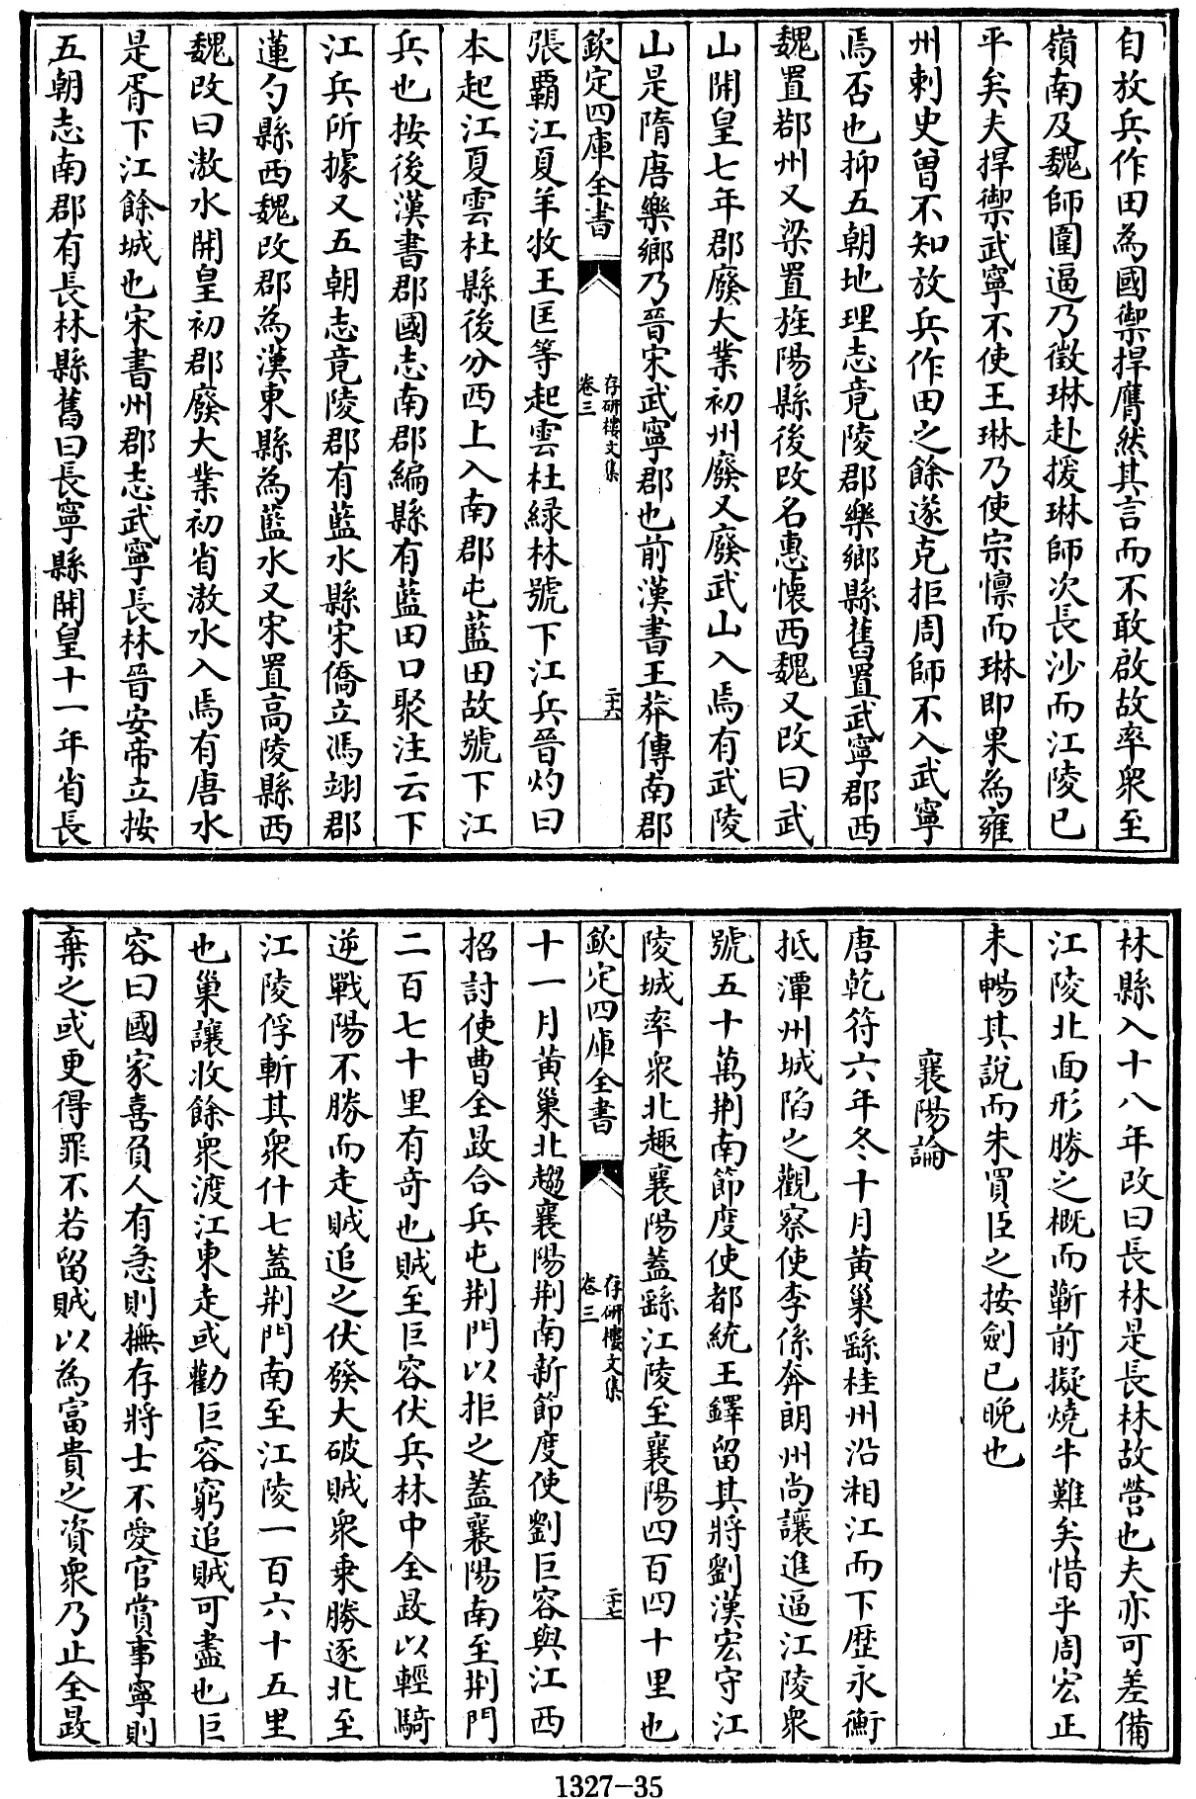 自放兵作田為國禦捍膺然其言而不敢啟故率衆至
嶺南及魏師圍逼乃徵琳赴援琳師次長沙而江陵已
平矣夫捍禦武寧不使王琳乃使宗懍而琳即果為雍
州刺史曾不知放兵作田之餘遂克拒周師不入武寧
焉否也抑五朝地理志竟陵郡樂鄉縣舊置武寧郡西
魏置鄀州又梁置旌陽縣後改名惠懷西魏又改曰武
山開皇七年郡廢大業初州廢又廢武山入焉有武陵
山是隋唐樂鄉乃晉宋武寧郡也前漢書王莽傳南郡
欽定四庫全書
存研樓文集
卷三
二十六
張霸江夏羊牧王匡等起雲杜緑林號下江兵晉灼曰
本起江夏雲杜縣後分西上入南郡屯藍田故號下江
兵也按後漢書郡國志南郡編縣有藍田口聚注云下
江兵所據又五朝志竟陵郡有藍水縣宋僑立馮翊郡
蓮勺縣西魏改郡為漢東縣為藍水又宋置高陵縣西
魏改曰滶水開皇初郡廢大業初省滶水入焉有唐水
是胥下江餘城也宋書州郡志武寧長林晉安帝立按
五朝志南郡有長林縣舊曰長寧縣開皇十一年省長
林縣入十八年改曰長林是長林故營也夫亦可差備
江陵北面形勝之概而蘄前擬燒牛難矣惜乎周宏正
未暢其說而朱買臣之按劍已晚也
襄陽論
唐乾符六年冬十月黄巢繇桂州沿湘江而下歴永衡
抵潭州城陷之觀察使李係奔朗州尚讓進逼江陵衆
號五十萬荆南節度使都統王鐸留其將劉漢宏守江
陵城率衆北趣襄陽蓋繇江陵至襄陽四百四十里也
欽定四庫全書
存研樓文集
卷三
二十七
十一月黄巢北趨襄陽荆南新節度使劉巨容與江西
招討使曹全晸合兵屯荆門以拒之蓋襄陽南至荆門
二百七十里有奇也賊至巨容伏兵林中全晸以輕騎
逆戰陽不勝而走賊追之伏發大破賊衆乗勝逐北至
江陵俘斬其衆什七蓋荆門南至江陵一百六十五里
也巢讓收餘衆渡江東走或勸巨容窮追賊可盡也巨
容曰國家喜負人有急則撫存將士不愛官賞事寧則
棄之或更得罪不若留賊以為富貴之資衆乃止全晸
1327-35